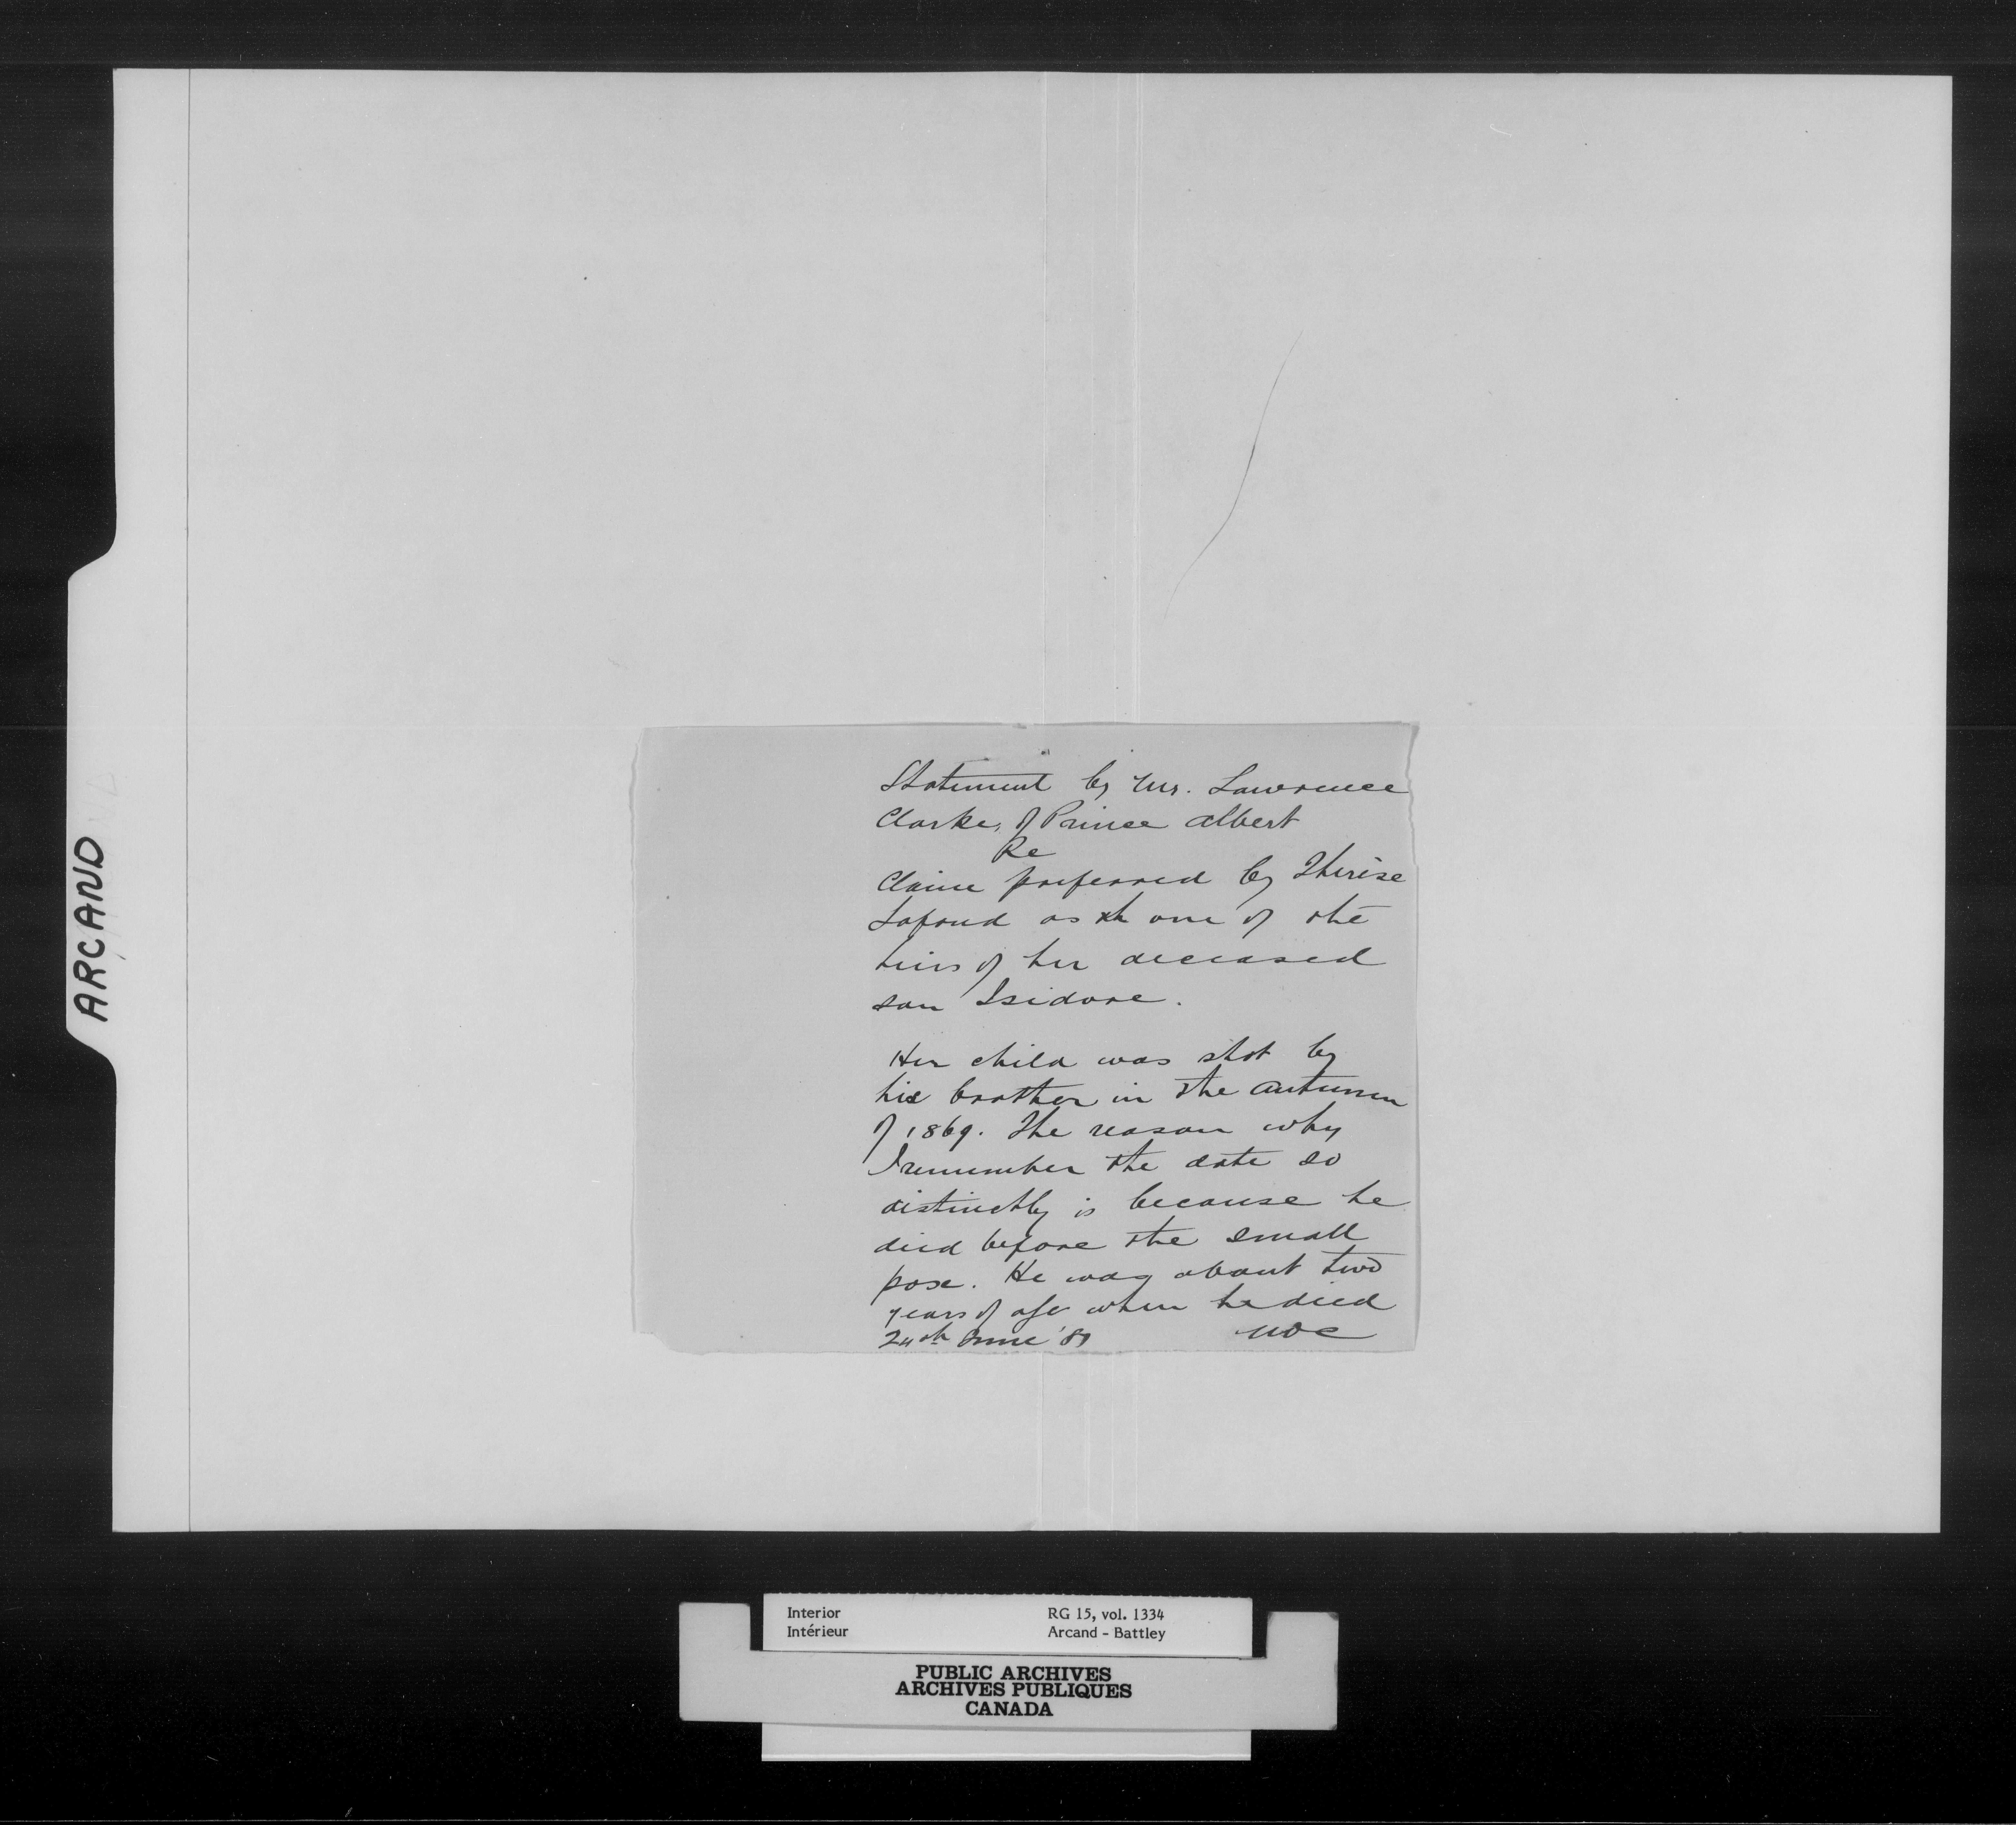 ARCAND
Statement by Mr. Lawrence
Clarke, of Prince Albert
Re
Claim preferred by Thérèse
Lafond as th one of the
heirs of her deceased
son Isidore.
Her child was shot by
his brother in the autumn
of 1869. The reason why
I remember the date so
distinctly is because he
died before the small
pox. He was about two
years of age when he died
24th June
Interior RG 15, vol. 1334
Intérieur Arcand - Battley
PUBLIC ARCHIVES
ARCHIVES PUBLIQUES
CANADA